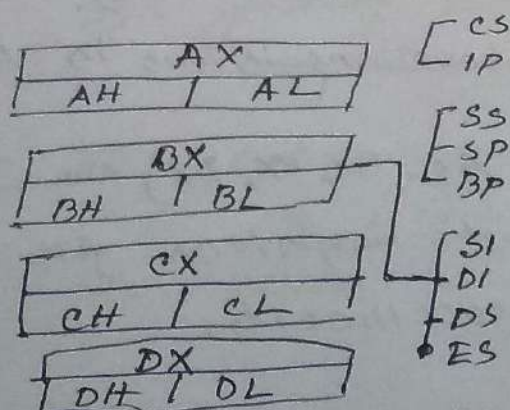 AX
AH AL
BX
BH BL
CX
CH CL
DX
DH DL
CS
IP
SS
SP
BP
SI
DI
DS
ES